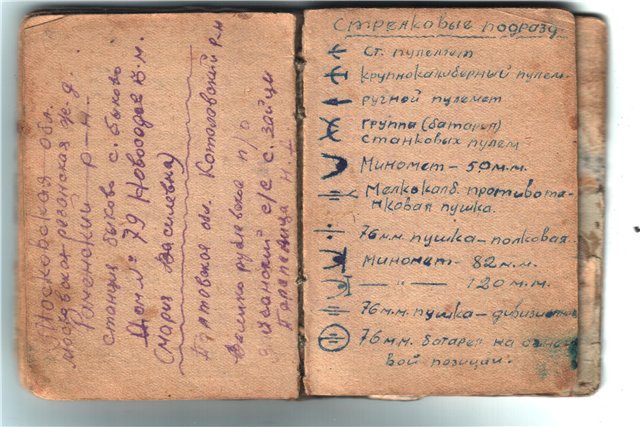 Московская обл.
Московско-рязанская ж.д.
Раменский р-н.
станция быково с. быково
Дом № 79 Новосадов В.м.
(мария Василевна)
Полтавская обл. Котоловский р-н
Великорублевское п/о
с/с с. Зайци
Н. Д.
Стрелковые подразд
Ст. пулемет
крупнокалиберный пулем-
ручной пулемет
группа (батарея)
станковых пулем
Миномет – 50 м.м.
Мелкокалб. противота-
нковая пушка.
76 м.м. пушка – полковая
Миномет – 82 м.м.
— „ — 120 м.м.
76 м.м. пушка – дивизион
76 м.м. батарея на огнев
вой позиции.